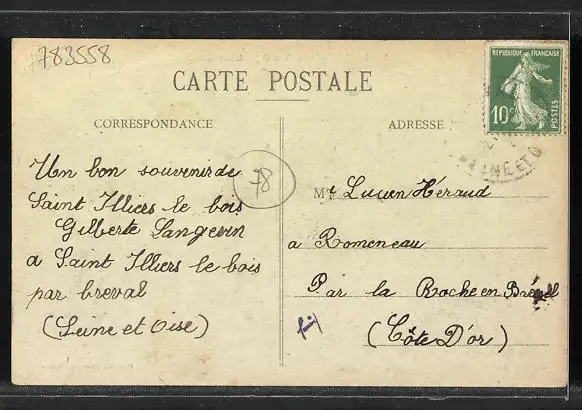 783558
CARTE POSTALE
REPUBLIQUE FRANÇAISE
10c
CORRESPONDANCE
ADRESSE
78
Un bon souvenir de
Saint Illiers le bois
Gilberte Langevin
a Saint Illiers le bois
par breval
(Seine et Oise)
Mr Lucien Héraud
a Romeneau
Par la Roche en Brenil
(Côte D'or)